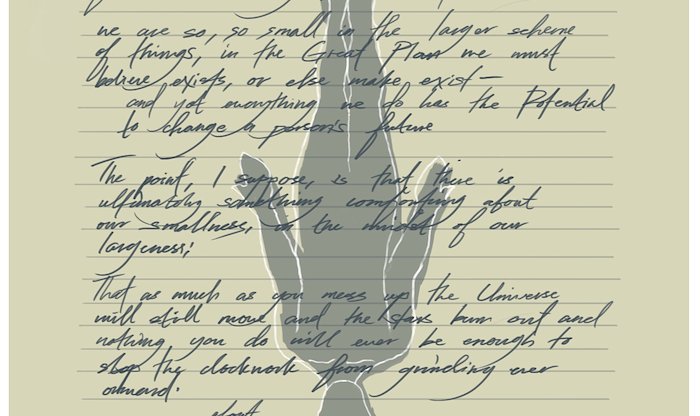 we are so, so small in the larger scheme
of things, in the Great Plan we must
believe exists, or else make exist—
and yet everything we do has the Potential
to change a person's future
The point, I suppose, is that there is
ultimately something comforting about
our smallness, in the midst of our
largeness;
That as much as you mess up the Universe
will still move and the stars burn out and
nothing you do will ever be enough to
stop the clockwork from grinding ever
onward.